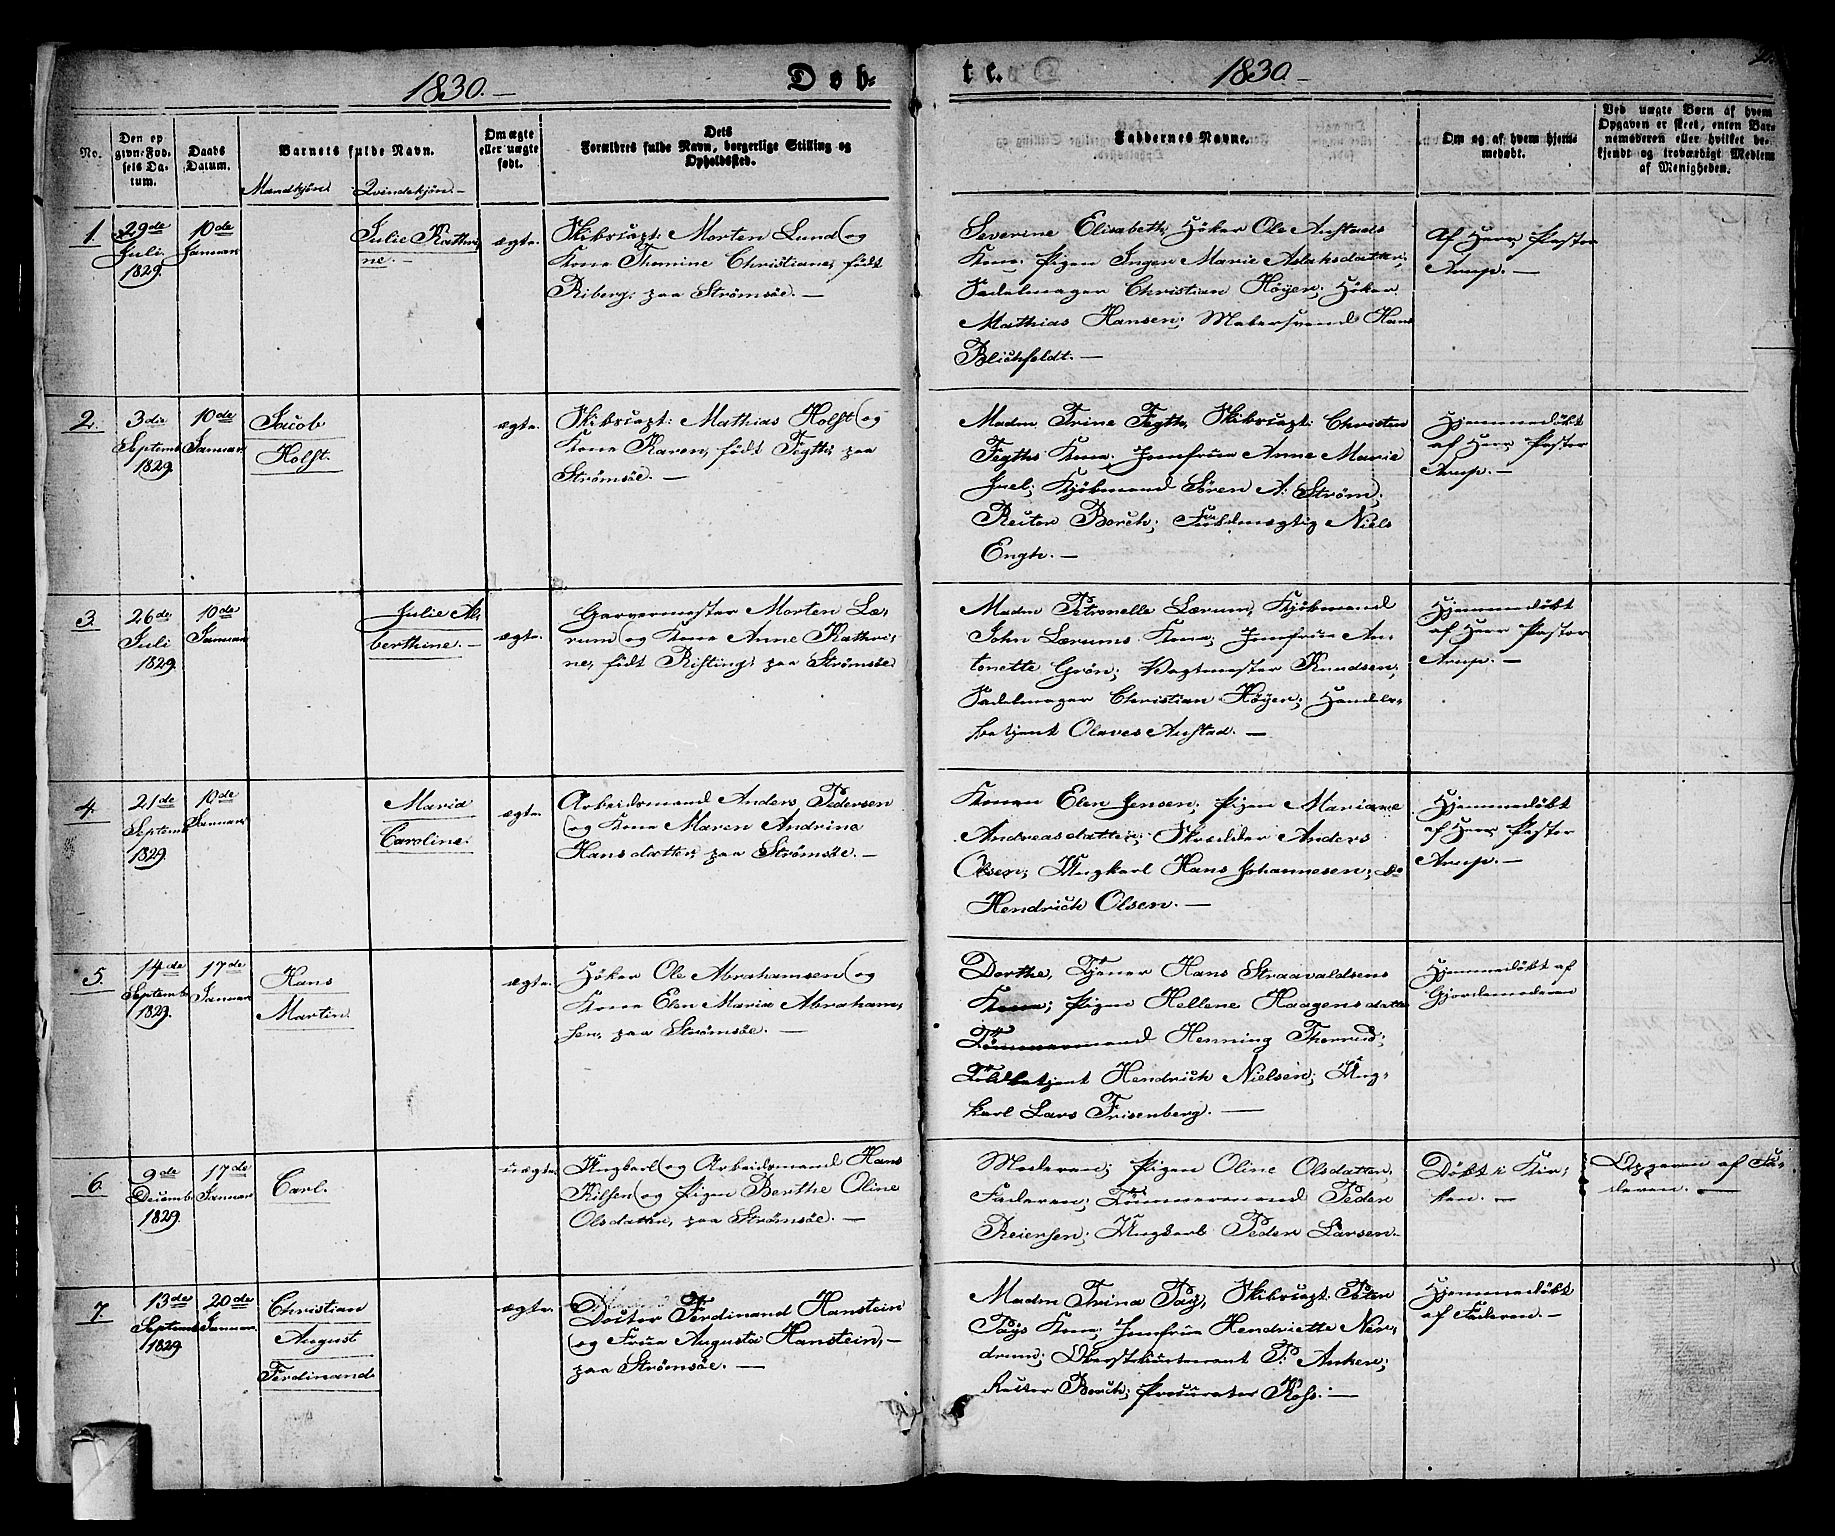 1830.
Døb-
te.
1830.
No.
Den op
givne Fød-
sels Da-
tum.
Daabs
Datum.
Barnets fulde Navn.
Mandkjøn.
Qvindekjøn.
Om ægte
eller uægte
født.
Dets
Forældres fulde Navn, borgerlige Stilling og
Opholdssted.
Faddernes Navne.
Om og af hvem hjem-
medøbt.
Ved uægte Børn af hvem
Opgaven er skeet, enten Bar-
nemoderen eller hvilket be-
kjendt og troværdigt Medlem
af Menigheden.
1.
29de
Juli
1829.
10de
Januar.
Julie Kathri-
ne.
ægte.
Skibscapt: Morten Lund og
Kone Thomine Christiane, født
Riberg, paa Strømsøe.
Severine Elisabeth, Høker Ole Anstads
Kone; Pigen Inger Marie Aslaksdatter;
Sadelmager Christian Høyer; Høker
Mathias Hansen; Malersvend Hans
Blichfeldt.
Af Herr Pastor
Arup.
2.
3die
Septemb.
1829.
10de
Januar.
Jacob
Holst.
ægte.
Skibscapt: Mathias Holst og
Kone Karen, født Fegth, paa
Strømsøe.
Madm Trine Fegth, Skibscapt: Christen
Fegths Kone; Jomfrue Anne Marie
Juel; Kjøbmand Søren A: Strøm;
Rector Borch; Fuldmægtig Niels
Engh.
Hjemmedøbt
af Herr Pastor
Arup.
3.
26de
Juli
1829.
10de
Januar.
Julie Al-
berthine.
ægte.
Garvermester Morten Læ-
rum og Kone Anne Kathri-
ne, født Risting, paa Strømsøe.
Madm Petronelle Lærum, Kjøbmand
John Lærums Kone; Jomfrue An-
tonette Grøn; Vagtmester Knudsen;
Sadelmager Christian Høyer; Handels-
betjent Olaves Anstad.
Hjemmedøbt
af Herr Pastor
Arup.
4.
21de
Septemb.
1829.
10de
Januar.
Maria
Caroline.
ægte.
Arbeidsmand Anders Pedersen
og Kone Maren Andrina
Hansdatter, paa Strømsøe.
Konen Elen Jensen; Pigen Mariane
Andreasdatter; Skrædder Anders
Olsen; Ungkarl Hans Johannesen; do
Hendrich Olsen.
Hjemmedøbt
af Herr Pastor
Arup.
5.
14de
Septemb.
1829.
17de
Januar.
Hans
Martin.
ægte.
Høker Ole Abrahamsen og
Kone Elen Maria Abraham-
sen, paa Strømsøe.
Dorthe, Tjener Hans Straavaldsens
Kone; Pigen Hellene Haagensdatter
Tømmermand Henning Thorrud;
Toldbetjent Hendrich Nielsen; Ung-
karl Lars Frisenberg.
Hjemmedøbt af
Gjordemoderen
6.
9de
Decemb.
1829.
17de
Januar.
Carl.
uægte.
Ungkarl og Arbeidsmand Hans
Nilsen og Pigen Berthe Oline
Olsdatter, paa Strømsøe.
Moderen; Pigen Oline Olsdatter;
Faderen; Tømmermand Peder
Reiersen; Ungkarl Peder Larsen.
Døbt i Kir-
ken.
Opgaven af Fa-
deren.
7.
13de
Septemb.
1829.
20de
Januar.
Christian
August
Ferdinand.
ægte.
Doctor Ferdinand Hanstein
og Frue Augusta Hanstein,
paa Strømsøe.
Madm Trina Pay, Skibscapt: Peter
Pays Kone; Jomfrue Hendriette Ner-
drum; Oberstlieutenant P. Anker;
Rector Borch; Procurator Ross.
Hjemmedøbt
af Faderen.